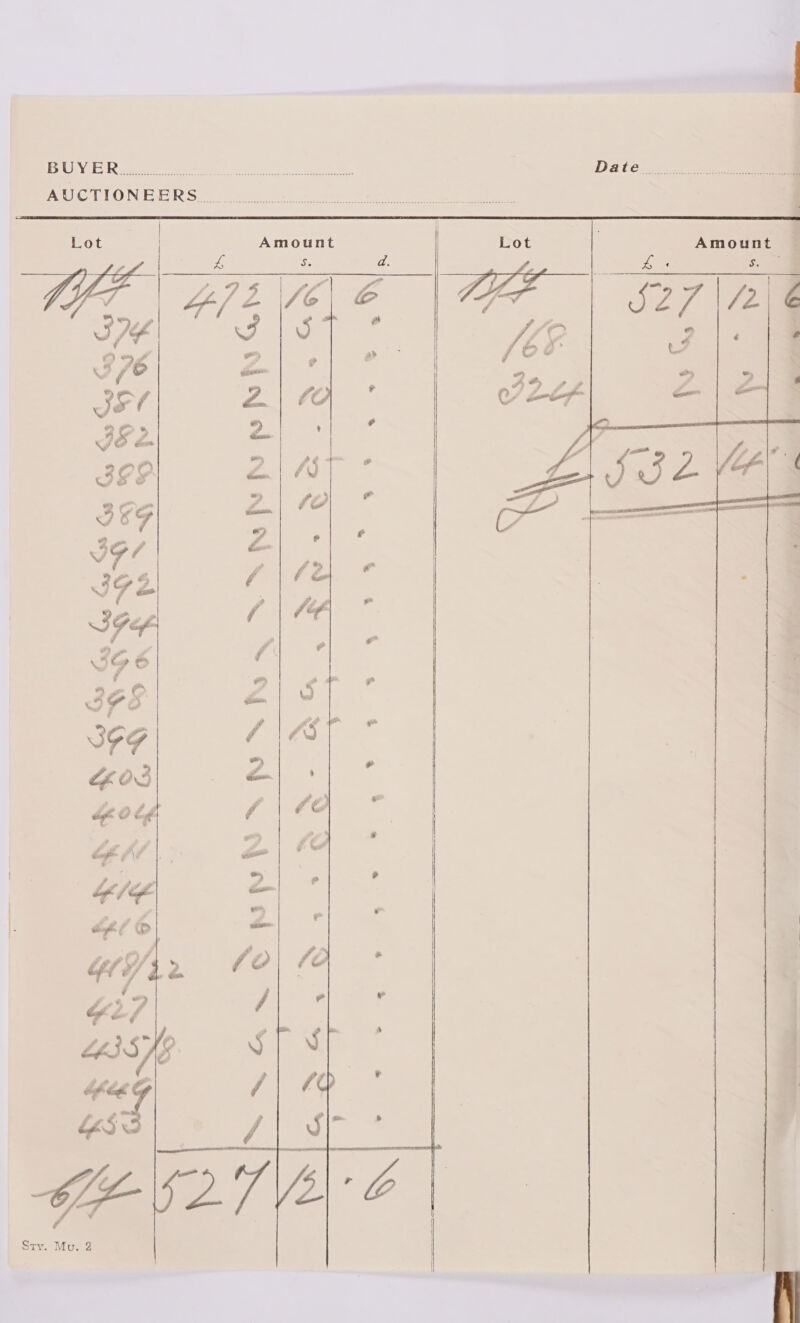 BUYER Date
AUCTIONEERS
Lot Amount Lot Amount
£ s. d. £ s.
B/F 472 16 6
374 3 5 "
376 2 " "
381 2 10 "
382 2 " "
388 2 15 "
389 2 10 "
391 2 " "
392 1 12 "
394 1 14 "
396 1 " "
398 2 5 "
399 1 15 "
403 2 " "
404 1 10 "
411 2 10 "
414 2 " "
416 2 " "
419/22 10 10 "
427 1 " "
435/8 5 5 "
449 1 10 "
453 1 5 "
C/F 527 12 6
B/F 527 12 6
168 3 " "
324 2 2 "
£ 532 14
Sty. Mu. 2